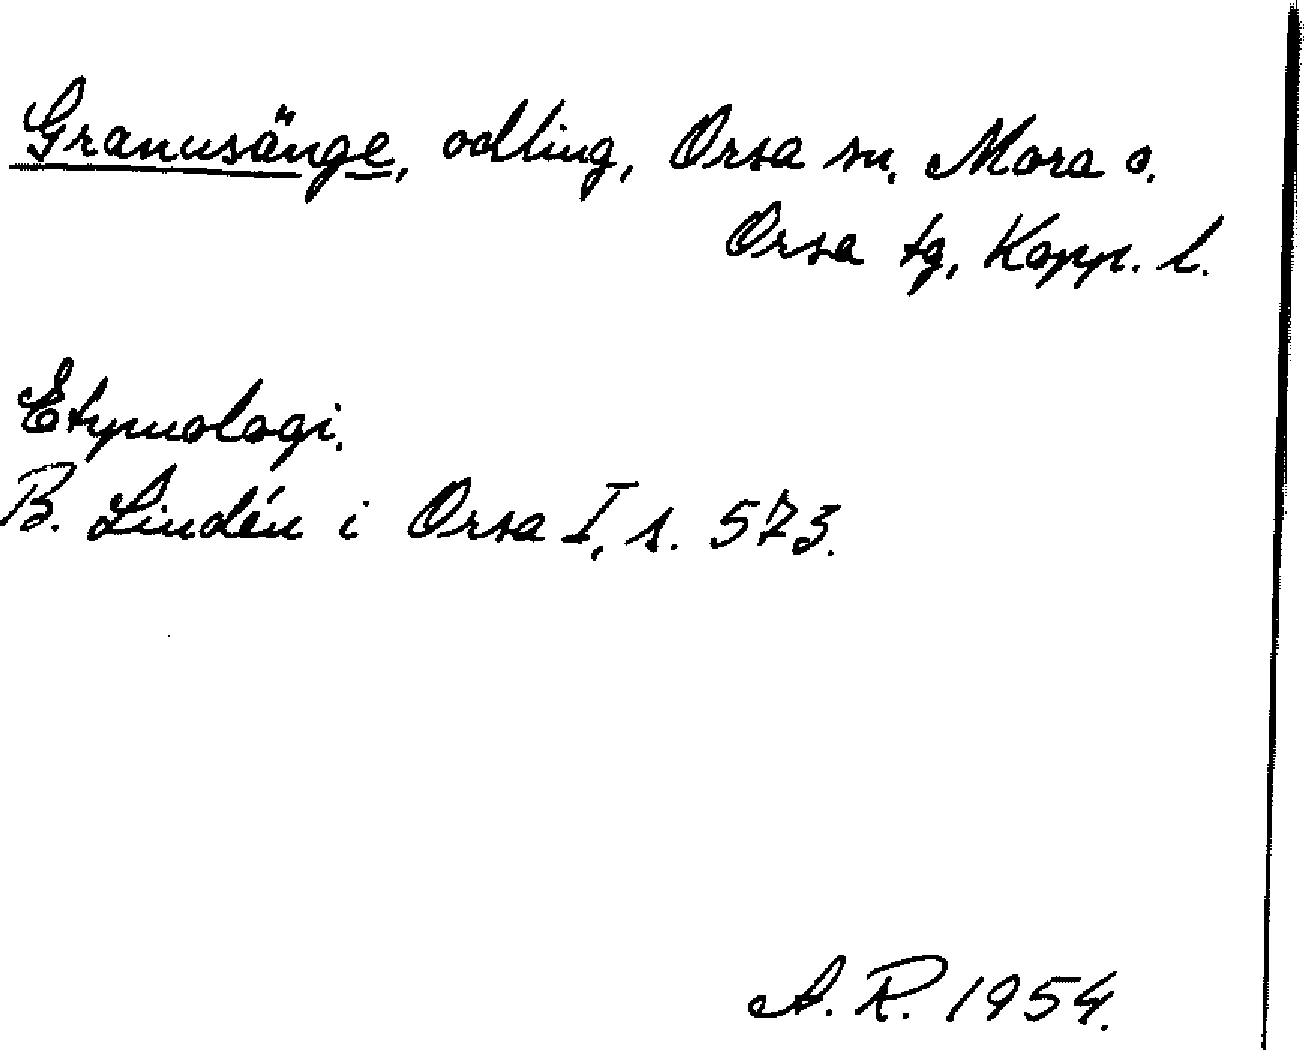 Granusänge, odling, Orsa sn. Mora o.
Orsa tg, Kopp. l.
Etymologi.
B. Lindén i Orsa I, s. 573.
A. R. 1954.